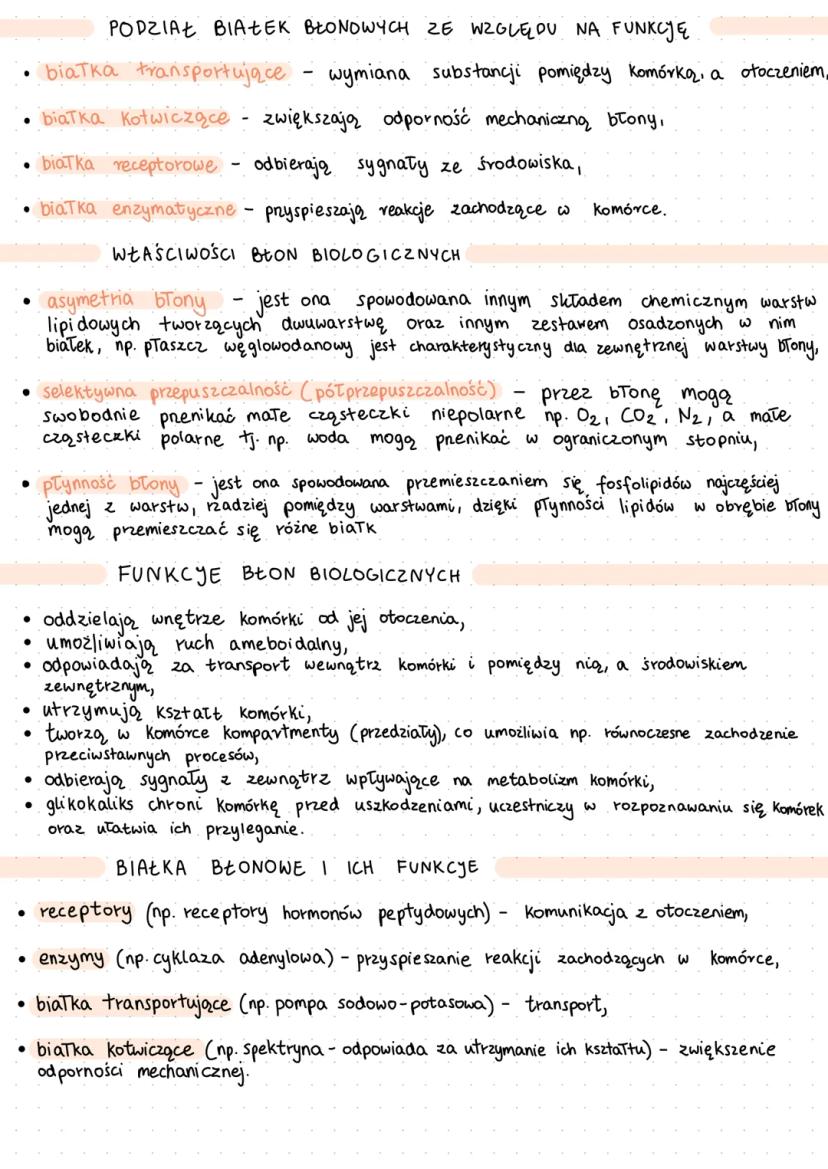 PODZIAŁ BIAŁEK BŁONOWYCH ZE WZGLĘDU NA FUNKCJĘ
• białka transportujące – wymiana substancji pomiędzy komórką, a otoczeniem,
• białka kotwiczące - zwiększają odporność mechaniczną błony,
• białka receptorowe – odbierają sygnały ze środowiska,
• białka enzymatyczne – przyspieszają reakcje zachodzące w komórce.
WŁAŚCIWOŚCI BŁON BIOLOGICZNYCH
• asymetria błony – jest ona spowodowana innym składem chemicznym warstw
lipidowych tworzących dwuwarstwę oraz innym zestawem osadzonych w nim
białek, np. płaszcz węglowodanowy jest charakterystyczny dla zewnętrznej warstwy błony,
• selektywna przepuszczalność (półprzepuszczalność) – przez błonę mogą
swobodnie przenikać małe cząsteczki niepolarne np. O₂, CO₂, N₂, a małe
cząsteczki polarne tj. np. woda mogą przenikać w ograniczonym stopniu,
• płynność błony – jest ona spowodowana przemieszczaniem się fosfolipidów najczęściej
jednej z warstw, rzadziej pomiędzy warstwami, dzięki płynności lipidów w obrębie błony
mogą przemieszczać się różne białk
FUNKCJE BŁON BIOLOGICZNYCH
• oddzielają wnętrze komórki od jej otoczenia,
• umożliwiają ruch ameboidalny,
• odpowiadają za transport wewnątrz komórki i pomiędzy nią, a środowiskiem
zewnętrznym,
• utrzymują kształt komórki,
• tworzą w komórce kompartmenty (przedziały), co umożliwia np. równoczesne zachodzenie
przeciwstawnych procesów,
• odbierają sygnały z zewnątrz wpływające na metabolizm komórki,
• glikokaliks chroni komórkę przed uszkodzeniami, uczestniczy w rozpoznawaniu się komórek
oraz ułatwia ich przyleganie.
BIAŁKA BŁONOWE I ICH FUNKCJE
• receptory (np. receptory hormonów peptydowych) – komunikacja z otoczeniem,
• enzymy (np. cyklaza adenylowa) – przyspieszanie reakcji zachodzących w komórce,
• białka transportujące (np. pompa sodowo-potasowa) – transport,
• białka kotwiczące (np. spektryna - odpowiada za utrzymanie ich kształtu) – zwiększenie
odporności mechanicznej.